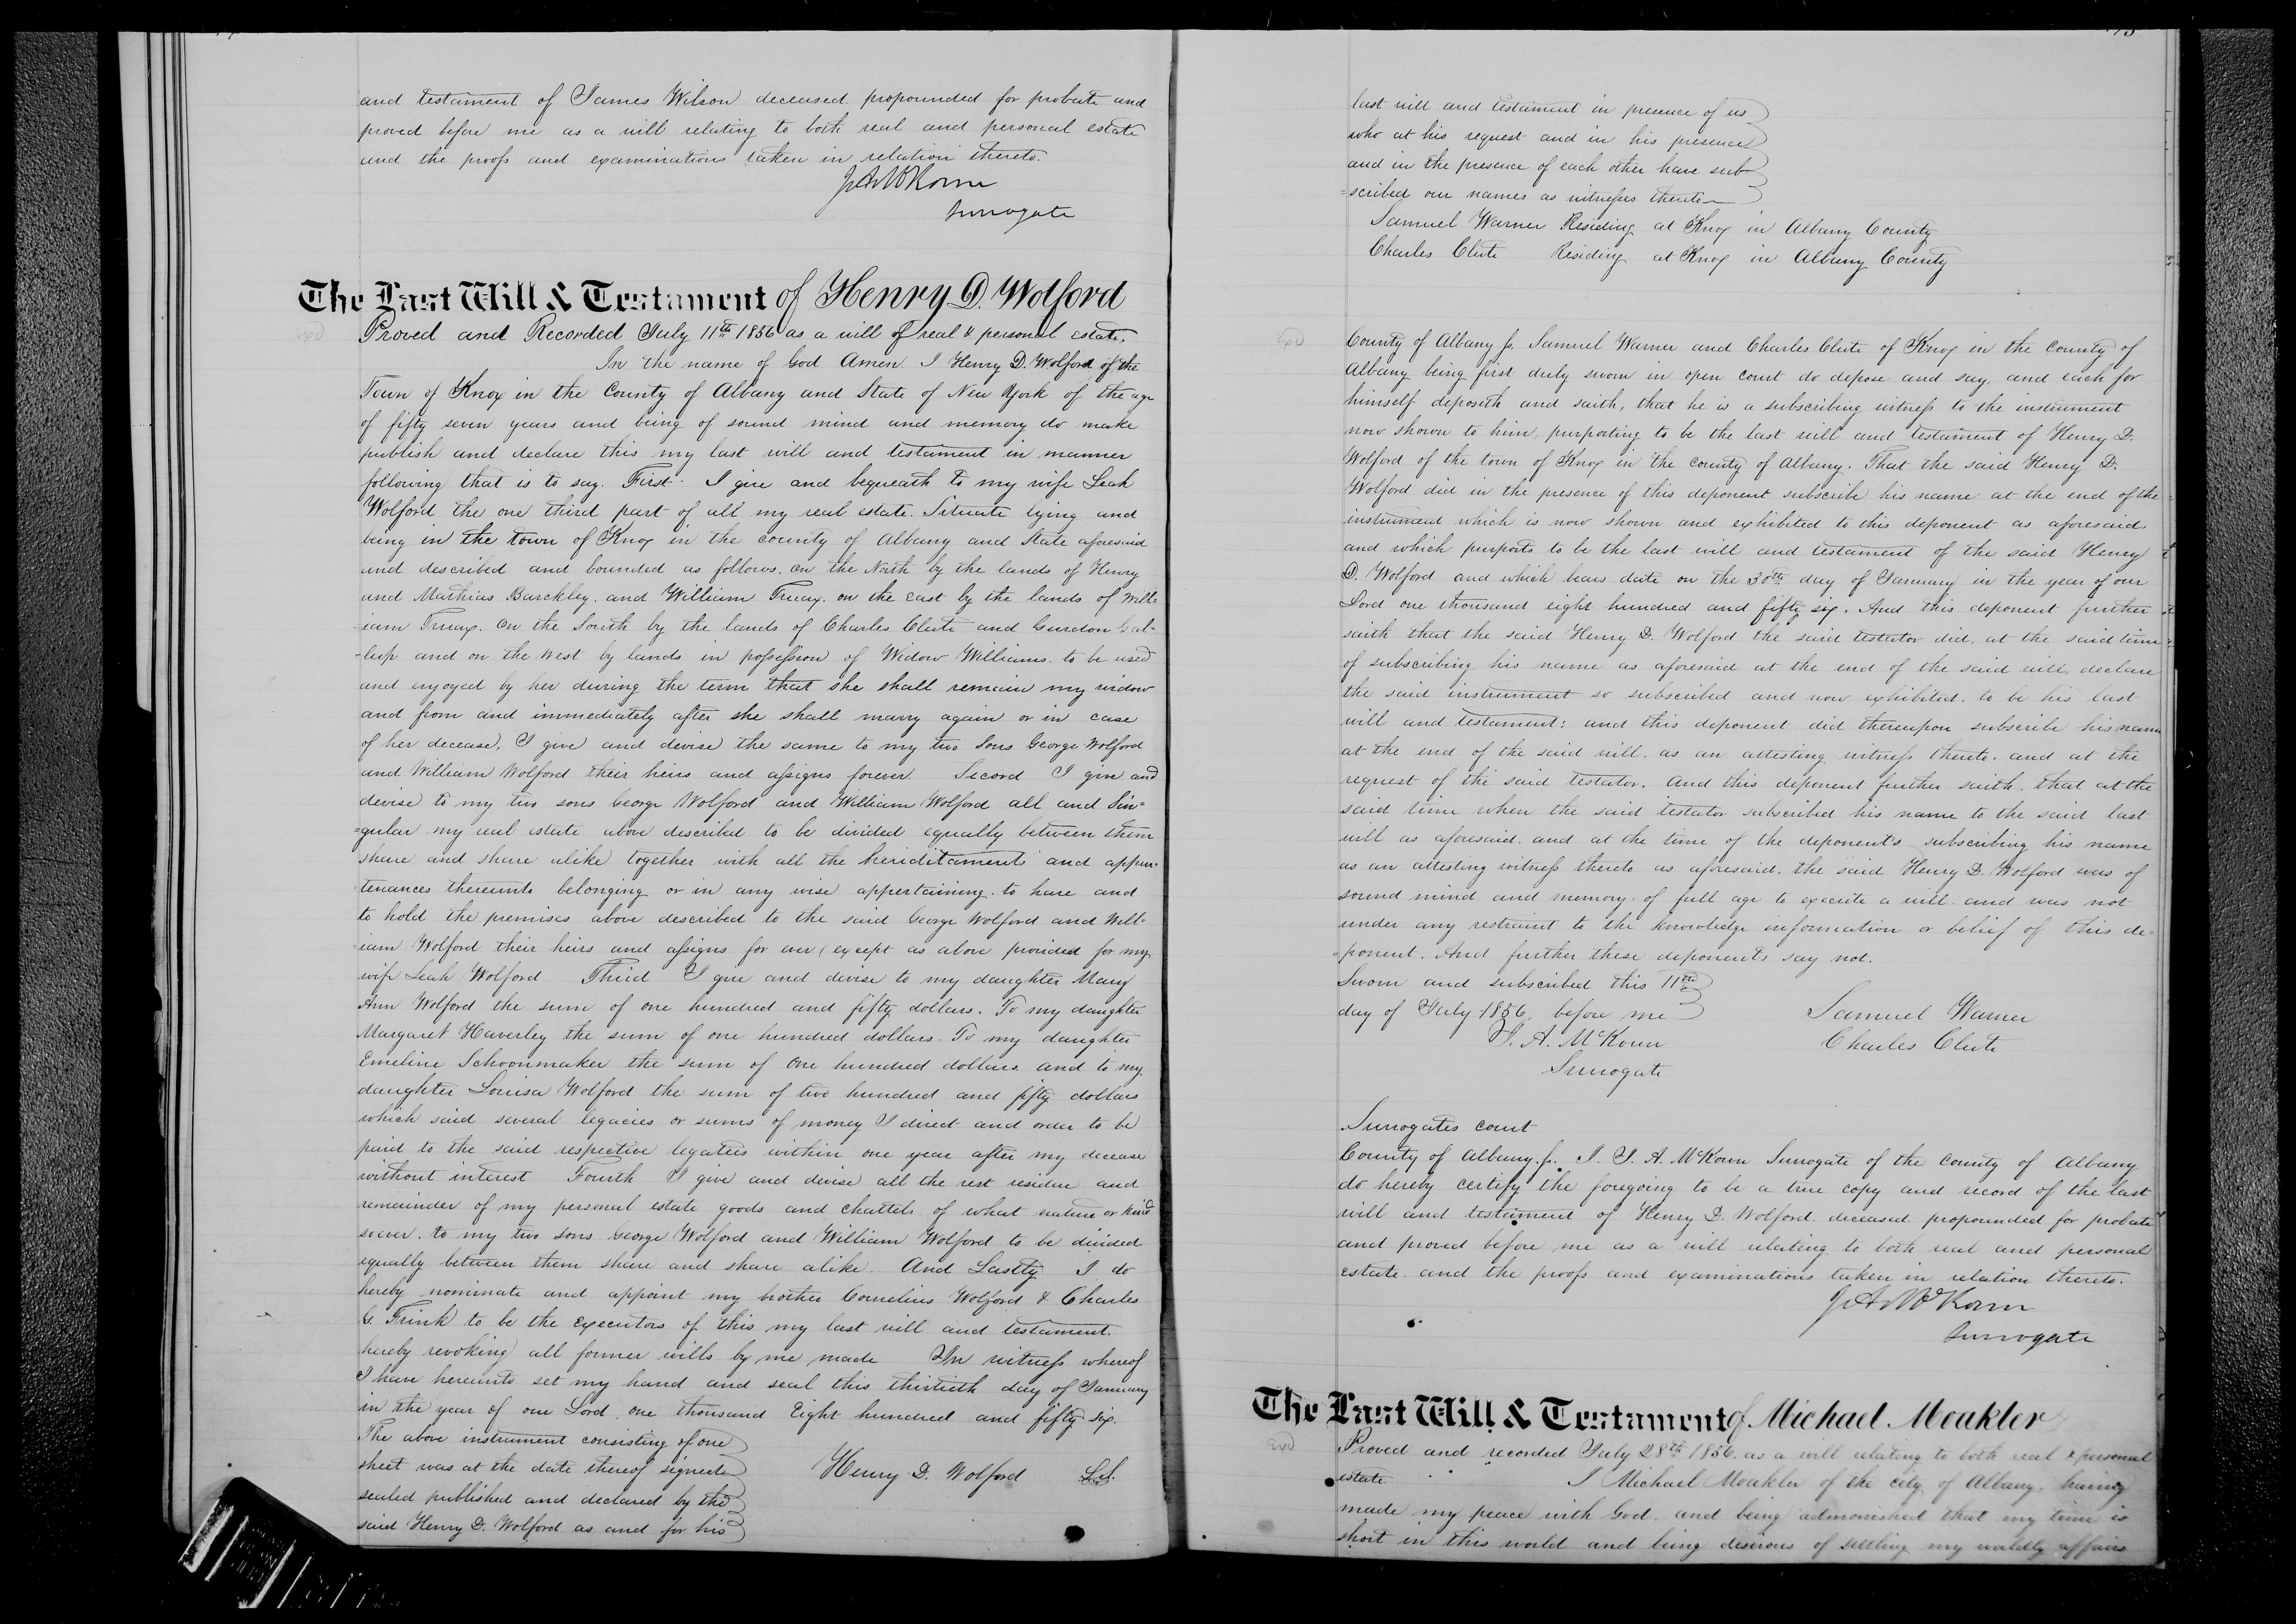 and testament of James Wilson deceased propounded for probate and
proved before me as a will relating to both real and personal estate
and the proofs and examinations taken in relation thereto.
J. A. McKown
Surrogate
The Last Will & Testament of Henry D. Wolford
Proved and Recorded July 11th 1856 as a will of real & personal estate.
In the name of God Amen. I Henry D. Wolford of the
Town of Knox in the County of Albany and State of New York of the age
of fifty seven years and being of sound mind and memory do make
publish and declare this my last will and testament in manner
following that is to say. First. I give and bequeath to my wife Leah
Wolford the one third part of all my real estate. Situate lying and
being in the town of Knox in the county of Albany and State aforesaid
and described and bounded as follows. on the North by the lands of Henry
and Mathias Barckley. and William Truax. on the east by the lands of Will-
=iam Truax. On the South by the lands of Charles Clute and Gurdon Gal-
-lup and on the West by lands in possession of Widow Williams. to be used
and enjoyed by her during the term that she shall remain my widow
and from and immediately after she shall marry again or in case
of her decease, I give and devise the same to my two Sons George Wolford
and William Wolford their heirs and assigns forever. Second I give and
devise to my two sons George Wolford and William Wolford all and Sin=
=gular my real estate above described to be divided equally between them
share and share alike together with all the hereditaments and appur-
=tenances thereunto belonging or in any wise appertaining. to have and
to hold the premises above described to the said George Wolford and Will-
=iam Wolford their heirs and assigns for ever (except as above provided for my
wife Leah Wolford Third I give and devise to my daughter Mary
Ann Wolford the sum of one hundred and fifty dollars. To my daughter
Margaret Haverley the sum of one hundred dollars. To my daughter
Emeline Schoonmaker the sum of One hundred dollars. and to my
daughter Louisa Wolford the sum of two hundred and fifty dollars
which said several legacies or sums of money I direct and order to be
paid to the said respective legatees within one year after my decease
without interest Fourth I give and devise all the rest residue and
remainder of my personal estate goods and chattels of what nature or kind
soever. to my two sons George Wolford and William Wolford to be divided
equally between them share and share alike. And Lastly I do
hereby nominate and appoint my brother Cornelius Wolford & Charles
G. Frink to be the executors of this my last will and testament.
hereby revoking all former wills by me made In witness whereof
I have hereunto set my hand and seal this thirtieth day of January
in the year of our Lord one thousand Eight hundred and fifty six.
The above instrument consisting of one
sheet was at the date thereof signed
sealed published and declared by the
said Henry D. Wolford as and for his
Henry D. Wolford L.S.
last will and testament in presence of us
who at his request and in his presence
and in the presence of each other have sub-
=scribed our names as witnesses thereto
Samuel Warner Residing at Knox in Albany County
Charles Clute Residing at Knox in Albany County
County of Albany ss. Samuel Warner and Charles Clute of Knox in the county of
Albany being first duly sworn in open court do depose and say, and each for
himself deposeth and saith, that he is a subscribing witness to the instrument
now shown to him, purporting to be the last will and testament of Henry D.
Wolford of the town of Knox in the county of Albany. That the said Henry D.
Wolford did in the presence of this deponent subscribe his name at the end of the
instrument which is now shown and exhibited to this deponent as aforesaid.
and which purports to be the last will and testament of the said Henry
D. Wolford and which bears date on the 30th day of January in the year of our
Lord one thousand eight hundred and fifty six. And this deponent further
saith that the said Henry D. Wolford the said testator did, at the said time
of subscribing his name as aforesaid at the end of the said will, declare
the said instrument so subscribed and now exhibited. to be his last
will and testament; and this deponent did thereupon subscribe his name
at the end of the said will. as an attesting witness thereto. and at the
request of the said testator. And this deponent further saith. that at the
said time when the said testator subscribed his name to the said last
will as aforesaid. and at the time of the deponent's subscribing his name
as an attesting witness thereto as aforesaid. the said Henry D. Wolford was of
sound mind and memory. of full age to execute a will. and was not
under any restraint to the knowledge information or belief of this de-
=ponent. And further these deponents say not.
Sworn and subscribed this 11th
day of July 1856, before me
J. A. McKown
Surrogate
Samuel Warner
Charles Clute
Surrogates court
County of Albany. ss. I. J. A. McKown Surrogate of the county of Albany
do hereby certify the foregoing to be a true copy and record of the last
will and testament of Henry D. Wolford. deceased. propounded for probate
and proved before me as a will relating to both real and personal
estate. and the proofs and examinations taken in relation thereto.
J. A. McKown
Surrogate
The Last Will & Testament of Michael Moakler
Proved and recorded July 28th 1856. as a will relating to both real & personal
estate. I Michael Moakler of the city of Albany. having
made my peace with God. and being admonished that my time is
short in this world and being desirous of settling my worldly affairs